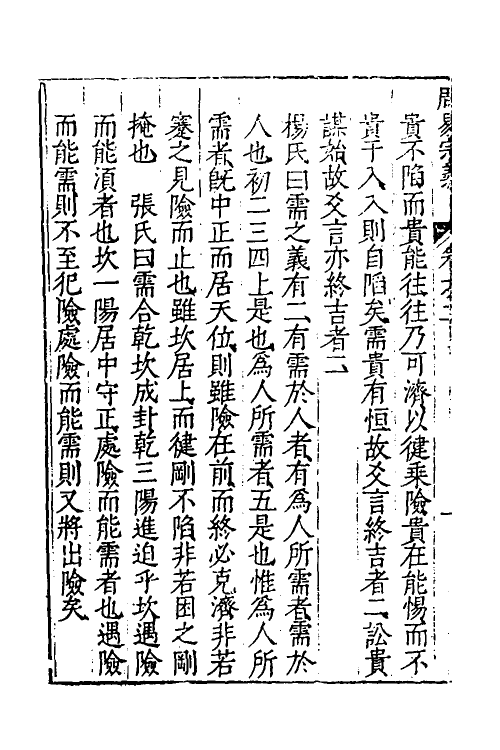 周易宗義
貴不陷而貴能往往乃可濟以健乘險貴在能惕而不
貴于入入則自陷矣需貴有恒故爻言終吉者二訟貴
謀始故爻言亦終吉者二
楊氏曰需之義有二有需於人者有為人所需者需於
人也初二三四上是也為人所需者五是也惟為人所
需者旣中正而居天位則雖險在前而終必克濟非若
蹇之見險而止也雖坎居上而健剛不陷非若困之剛
掩也　張氏曰需合乾坎成卦乾三陽進迫乎坎遇險
而能湏者也坎一陽居中守正處險而能需者也遇險
而能需則不至犯險處險而能需則又將出險矣